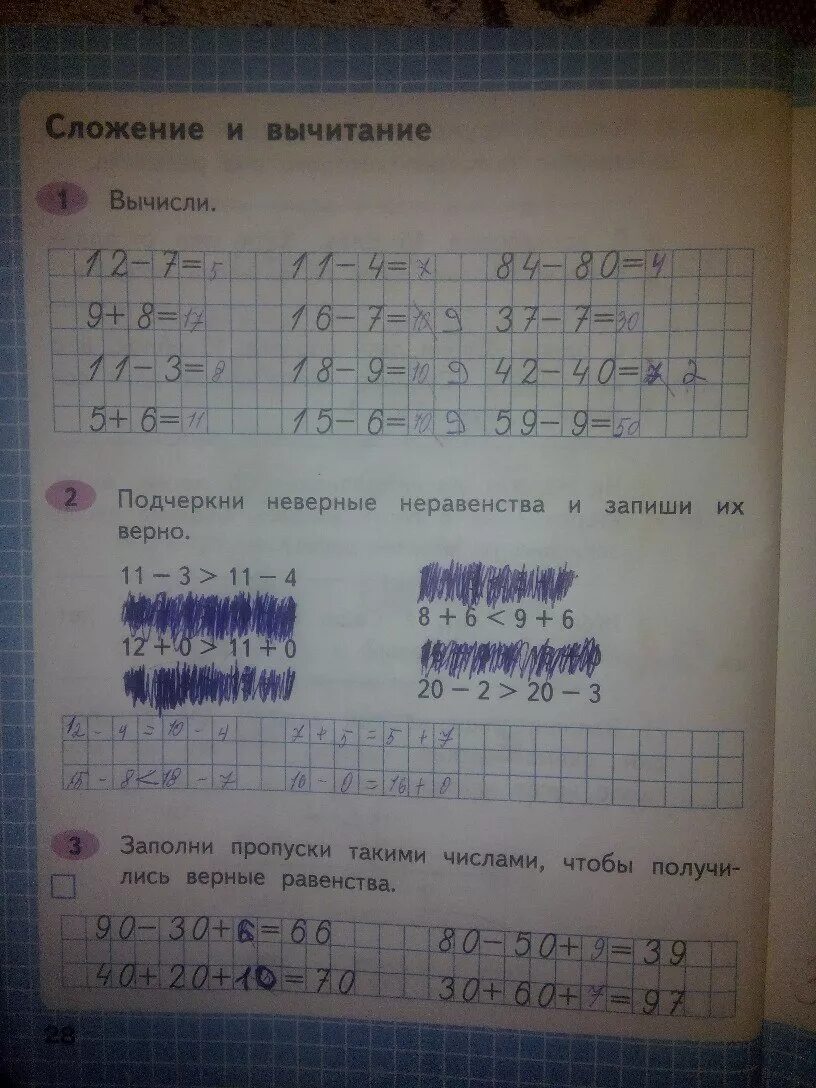 Сложение и вычитание
1 Вычисли.
12-7=5 11-4=7 84-80=4
9+8=17 16-7= 9 37-7=30
11-3=8 18-9=10 9 42-40= 2
5+6=11 15-6=10 9 59-9=50
2 Подчеркни неверные неравенства и запиши их
верно.
11 - 3 > 11 - 4
8 + 6 < 9 + 6
12 + 0 > 11 + 0
20 - 2 > 20 - 3
12 - 4 = 10 - 4 7 + 5 = 5 + 7
15 - 8 < 18 - 7 16 - 0 = 16 + 0
3 Заполни пропуски такими числами, чтобы получи-
лись верные равенства.
90-30+6=66 80-50+9=39
40+20+10=70 30+60+7=97
28